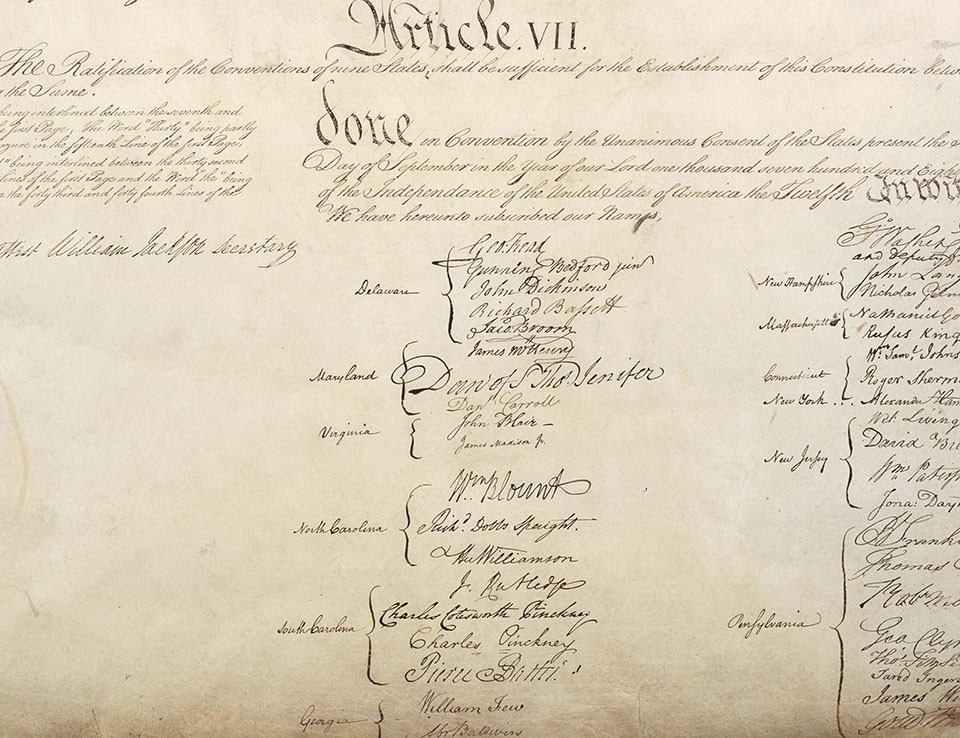 Article. VII.
The Ratification of the Conventions of nine States, shall be sufficient for the Establishment of this Constitution
the Same.
being interlined between the seventh and
first Page, The Word "Thirty" being partly
in the fifteenth Line of the first Page,
being interlined between the thirty second
Lines of the first Page and the Word "the" being
the forty third and forty fourth Lines of the
William Jackson Secretary
done in Convention by the Unanimous Consent of the States present the
Day of September in the Year of our Lord one thousand seven hundred and
of the Independance of the United States of America the Twelfth In
We have hereunto subscribed our Names,
Delaware
Geo: Read
Gunning Bedford jun
John Dickinson
Richard Bassett
Jaco: Broom
Maryland
James McHenry
Dan of St Thos. Jenifer
Danl Carroll
Virginia
John Blair —
James Madison Jr.
North Carolina
Wm. Blount
Richd. Dobbs Spaight.
Hu Williamson
South Carolina
J. Rutledge
Charles Cotesworth Pinckney
Charles Pinckney
Pierce Butler.
Georgia
William Few
Abr Baldwin
Go. Washing
and deputy
New Hampshire
John Lan
Nicholas Gilm
Massachusetts
Nathaniel Go
Rufus King
Connecticut
Wm. Saml. Johns
Roger Sherm
New York . . .
Alexander Ham
New Jersey
Wil: Living
David Br
Wm. Paters
Jona: Dayt
Pensylvania
B Frankl
Thomas
Robt Mo
Geo. Clym
Thos. Fitz
Jared Ingers
James Wi
Gouv